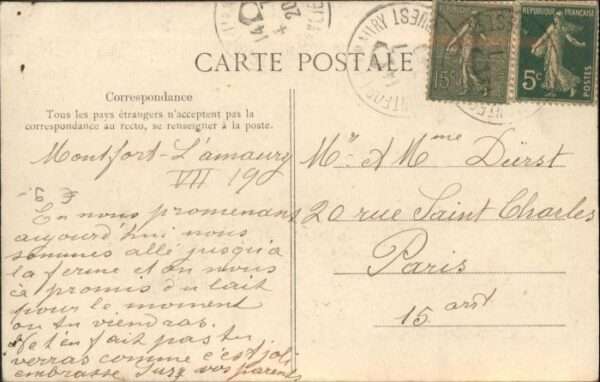 CARTE POSTALE
RÉPUBLIQUE FRANÇAISE
15c
5c
POSTES
Correspondance
Tous les pays étrangers n'acceptent pas la
correspondance au recto, se renseigner à la poste.
Montfort-L'amaury
VII 19
En nous promenans
aujourd'hui nous
sommes allé jusqu'à
la ferme et on nous
à promis du lait
pour le moment
ou tu viendras.
Ne t'en fait pas tu
verras comme c'est joli
embrasse Suzy vos parents
Mr & Mme Dürst
20 rue Saint Charles
Paris
15 arst